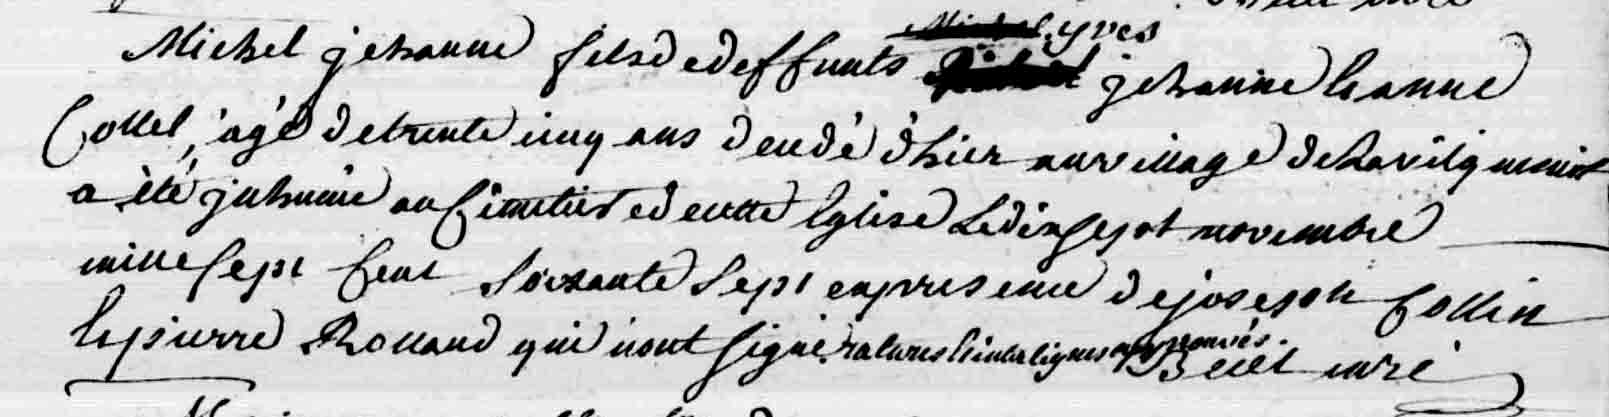 Yves
Michel jehanne fils de deffunts jehanne & anne
Collet, agé de trente cinq ans decedé d'hier au village de
a été juhumé au Cimetiere de cette Eglise Le dix sept novembre
mille sept Cent Soixante Sept en presence de joseph Collin
& pierre Rolland qui n'ont signé ratures & interlignes approuvés. curé